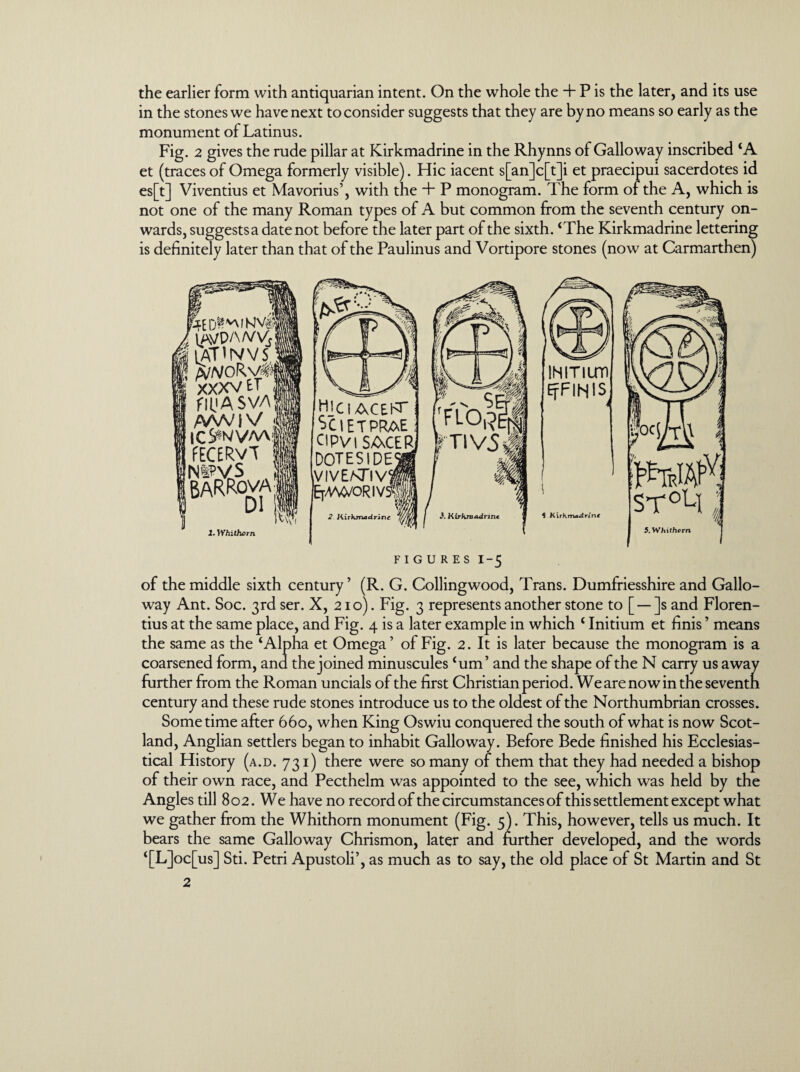 the earlier form with antiquarian intent. On the whole the + P is the later, and its use
in the stones we have next to consider suggests that they are by no means so early as the
monument of Latinus.
Fig. 2 gives the rude pillar at Kirkmadrine in the Rhynns of Galloway inscribed ‘A
et (traces of Omega formerly visible). Hic iacent s[an]c[t]i et praecipui sacerdotes id
es[t] Viventius et Mavorius’, with the + P monogram. The form of the A, which is
not one of the many Roman types of A but common from the seventh century on-
wards, suggests a date not before the later part of the sixth. ‘The Kirkmadrine lettering
is definitely later than that of the Paulinus and Vortipore stones (now at Carmarthen)
LATINVS
XXXV ET
FILIA SVA
FECERVT
BARROVA
DI
1. Whithorn
A ET
HIC IACENT
SCI ET PRAE
CIPVI SACER
DOTES IDES
VIVENTIVS
ET MAVORIVS
2 Kirkmadrine
S ET
FLOREN
TIVS
3. Kirkmadrine
INITIUM
ET FINIS
4 Kirkmadrine
LOC
PETRI APV
STOLI
5. Whithorn
FIGURES 1-5
of the middle sixth century’ (R. G. Collingwood, Trans. Dumfriesshire and Gallo-
way Ant. Soc. 3rd ser. X, 210). Fig. 3 represents another stone to [—]s and Floren-
tius at the same place, and Fig. 4 is a later example in which ‘Initium et finis’ means
the same as the ‘Alpha et Omega’ of Fig. 2. It is later because the monogram is a
coarsened form, and the joined minuscules ‘um’ and the shape of the N carry us away
further from the Roman uncials of the first Christian period. We are now in the seventh
century and these rude stones introduce us to the oldest of the Northumbrian crosses.
Some time after 660, when King Oswiu conquered the south of what is now Scot-
land, Anglian settlers began to inhabit Galloway. Before Bede finished his Ecclesias-
tical History (A.D. 731) there were so many of them that they had needed a bishop
of their own race, and Pecthelm was appointed to the see, which was held by the
Angles till 802. We have no record of the circumstances of this settlement except what
we gather from the Whithorn monument (Fig. 5). This, however, tells us much. It
bears the same Galloway Chrismon, later and further developed, and the words
‘[L]oc[us] Sti. Petri Apustoli’, as much as to say, the old place of St Martin and St
2